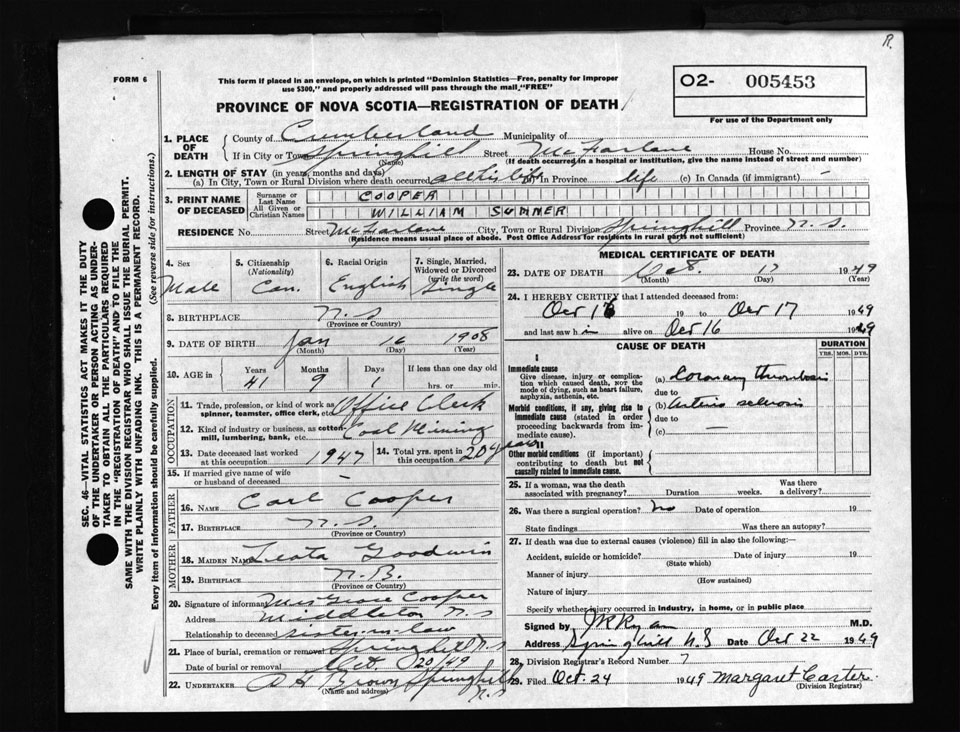 R.
FORM 6
This form if placed in an envelope, on which is printed "Dominion Statistics—Free, penalty for improper
use $300," and properly addressed will pass through the mail "FREE"
O2- 005453
For use of the Department only
PROVINCE OF NOVA SCOTIA—REGISTRATION OF DEATH
1. PLACE OF DEATH
County of Cumberland Municipality of
If in City or Town Springhill Street McFarlane House No.
(Name) (If death occurred in a hospital or institution, give the name instead of street and number)
2. LENGTH OF STAY (in years, months and days)
(a) In City, Town or Rural Division where death occurred all his life (b) In Province life (c) In Canada (if immigrant) -
3. PRINT NAME OF DECEASED
Surname or Last Name COOPER
All Given or Christian Names WILLIAM SUMNER
RESIDENCE No. Street McFarlane City, Town or Rural Division Springhill Province N.S.
(Residence means usual place of abode. Post Office Address for residents in rural parts not sufficient)
4. Sex Male
5. Citizenship (Nationality) Can.
6. Racial Origin English
7. Single, Married, Widowed or Divorced (write the word) Single
8. BIRTHPLACE N.S
(Province or Country)
9. DATE OF BIRTH Jan 16 1908
(Month) (Day) (Year)
10. AGE in Years 41 Months 9 Days 1 If less than one day old hrs. or min.
OCCUPATION
11. Trade, profession, or kind of work as spinner, teamster, office clerk, etc. Office Clerk
12. Kind of industry or business, as cotton-mill, lumbering, bank, etc. Coal Mining
13. Date deceased last worked at this occupation 1947
14. Total yrs. spent in this occupation 20 years
15. If married give name of wife or husband of deceased -
FATHER
16. NAME Carl Cooper
17. BIRTHPLACE N.S.
(Province or Country)
MOTHER
18. MAIDEN NAME Leota Goodwin
19. BIRTHPLACE N.B.
(Province or Country)
20. Signature of informant Mrs Grace Cooper
Address Middleton N.S
Relationship to deceased sister-in-law
21. Place of burial, cremation or removal Springhill N.S
Date of burial or removal Oct 20/49
22. UNDERTAKER A H Brown Springhill N.S
(Name and address)
MEDICAL CERTIFICATE OF DEATH
23. DATE OF DEATH Oct. 17 1949
(Month) (Day) (Year)
24. I HEREBY CERTIFY that I attended deceased from:
Oct 16 19 to Oct 17 1949
and last saw him alive on Oct 16 1949
CAUSE OF DEATH
DURATION
YRS. MOS. DYS.
I
Immediate cause
Give disease, injury or complication which caused death, NOT the mode of dying, such as heart failure, asphyxia, asthenia, etc.
(a) Coronary thrombosis
due to
Morbid conditions, if any, giving rise to immediate cause (stated in order proceeding backwards from immediate cause).
(b) Arterio sclerosis
due to
(c) —
II
Other morbid conditions (if important) contributing to death but not causally related to immediate cause.
25. If a woman, was the death associated with pregnancy? Duration weeks. Was there a delivery?
26. Was there a surgical operation? No Date of operation 19
State findings Was there an autopsy?
27. If death was due to external causes (violence) fill in also the following:—
Accident, suicide or homicide? Date of injury 19
(State which)
Manner of injury
(How sustained)
Nature of injury
Specify whether injury occurred in industry, in home, or in public place
Signed by Ryan M.D.
Address Springhill N.S Date Oct 22 1949
28. Division Registrar's Record Number 7
29. Filed Oct. 24 1949 Margaret Carter
(Division Registrar)
SEC. 46—VITAL STATISTICS ACT MAKES IT THE DUTY
OF THE UNDERTAKER OR PERSON ACTING AS UNDER-
TAKER TO OBTAIN ALL THE PARTICULARS REQUIRED
IN THE "REGISTRATION OF DEATH" AND TO FILE THE
SAME WITH THE DIVISION REGISTRAR WHO SHALL ISSUE THE BURIAL PERMIT.
WRITE PLAINLY WITH UNFADING INK. THIS IS A PERMANENT RECORD.
Every item of information should be carefully supplied. (See reverse side for instructions.)